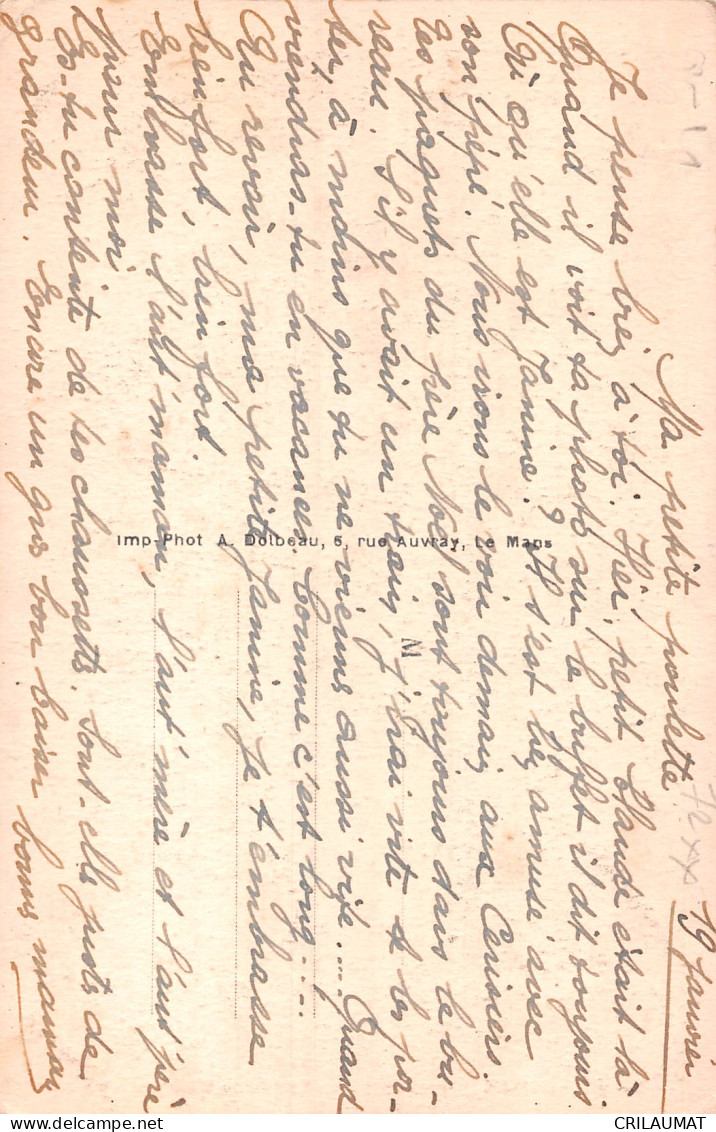 19 Janvier
Ma petite poulette
Je pense bien à toi. Hier, petit Claude était là
Quand il voit ta photo sur le buffet il dit toujours
Où qu'elle est Janine ? Il s'est bien amusé avec
son pépé. Nous irons le voir demain aux Cerisiers.
Les paquets du père Noël sont toujours dans le bu-
reau. S'il y avait un train, j'irai vite te les por-
ter, à moins que tu ne viennes aussi vite.... Quand
viendras-tu en vacances. Comme c'est long....
Au revoir, ma petite Janine, je t'embrasse
bien fort, bien fort.
Embrasse l'aut'maman, l'aut'mère et l'aut'père
pour moi
Es-tu contente de tes chaussettes. Sont-elle juste de
grandeur. Encore un gros bon baiser bonne maman
Imp-Phot A. Dolbeau, 6, rue Auvray, Le Mans
M
72xx
CRILAUMAT